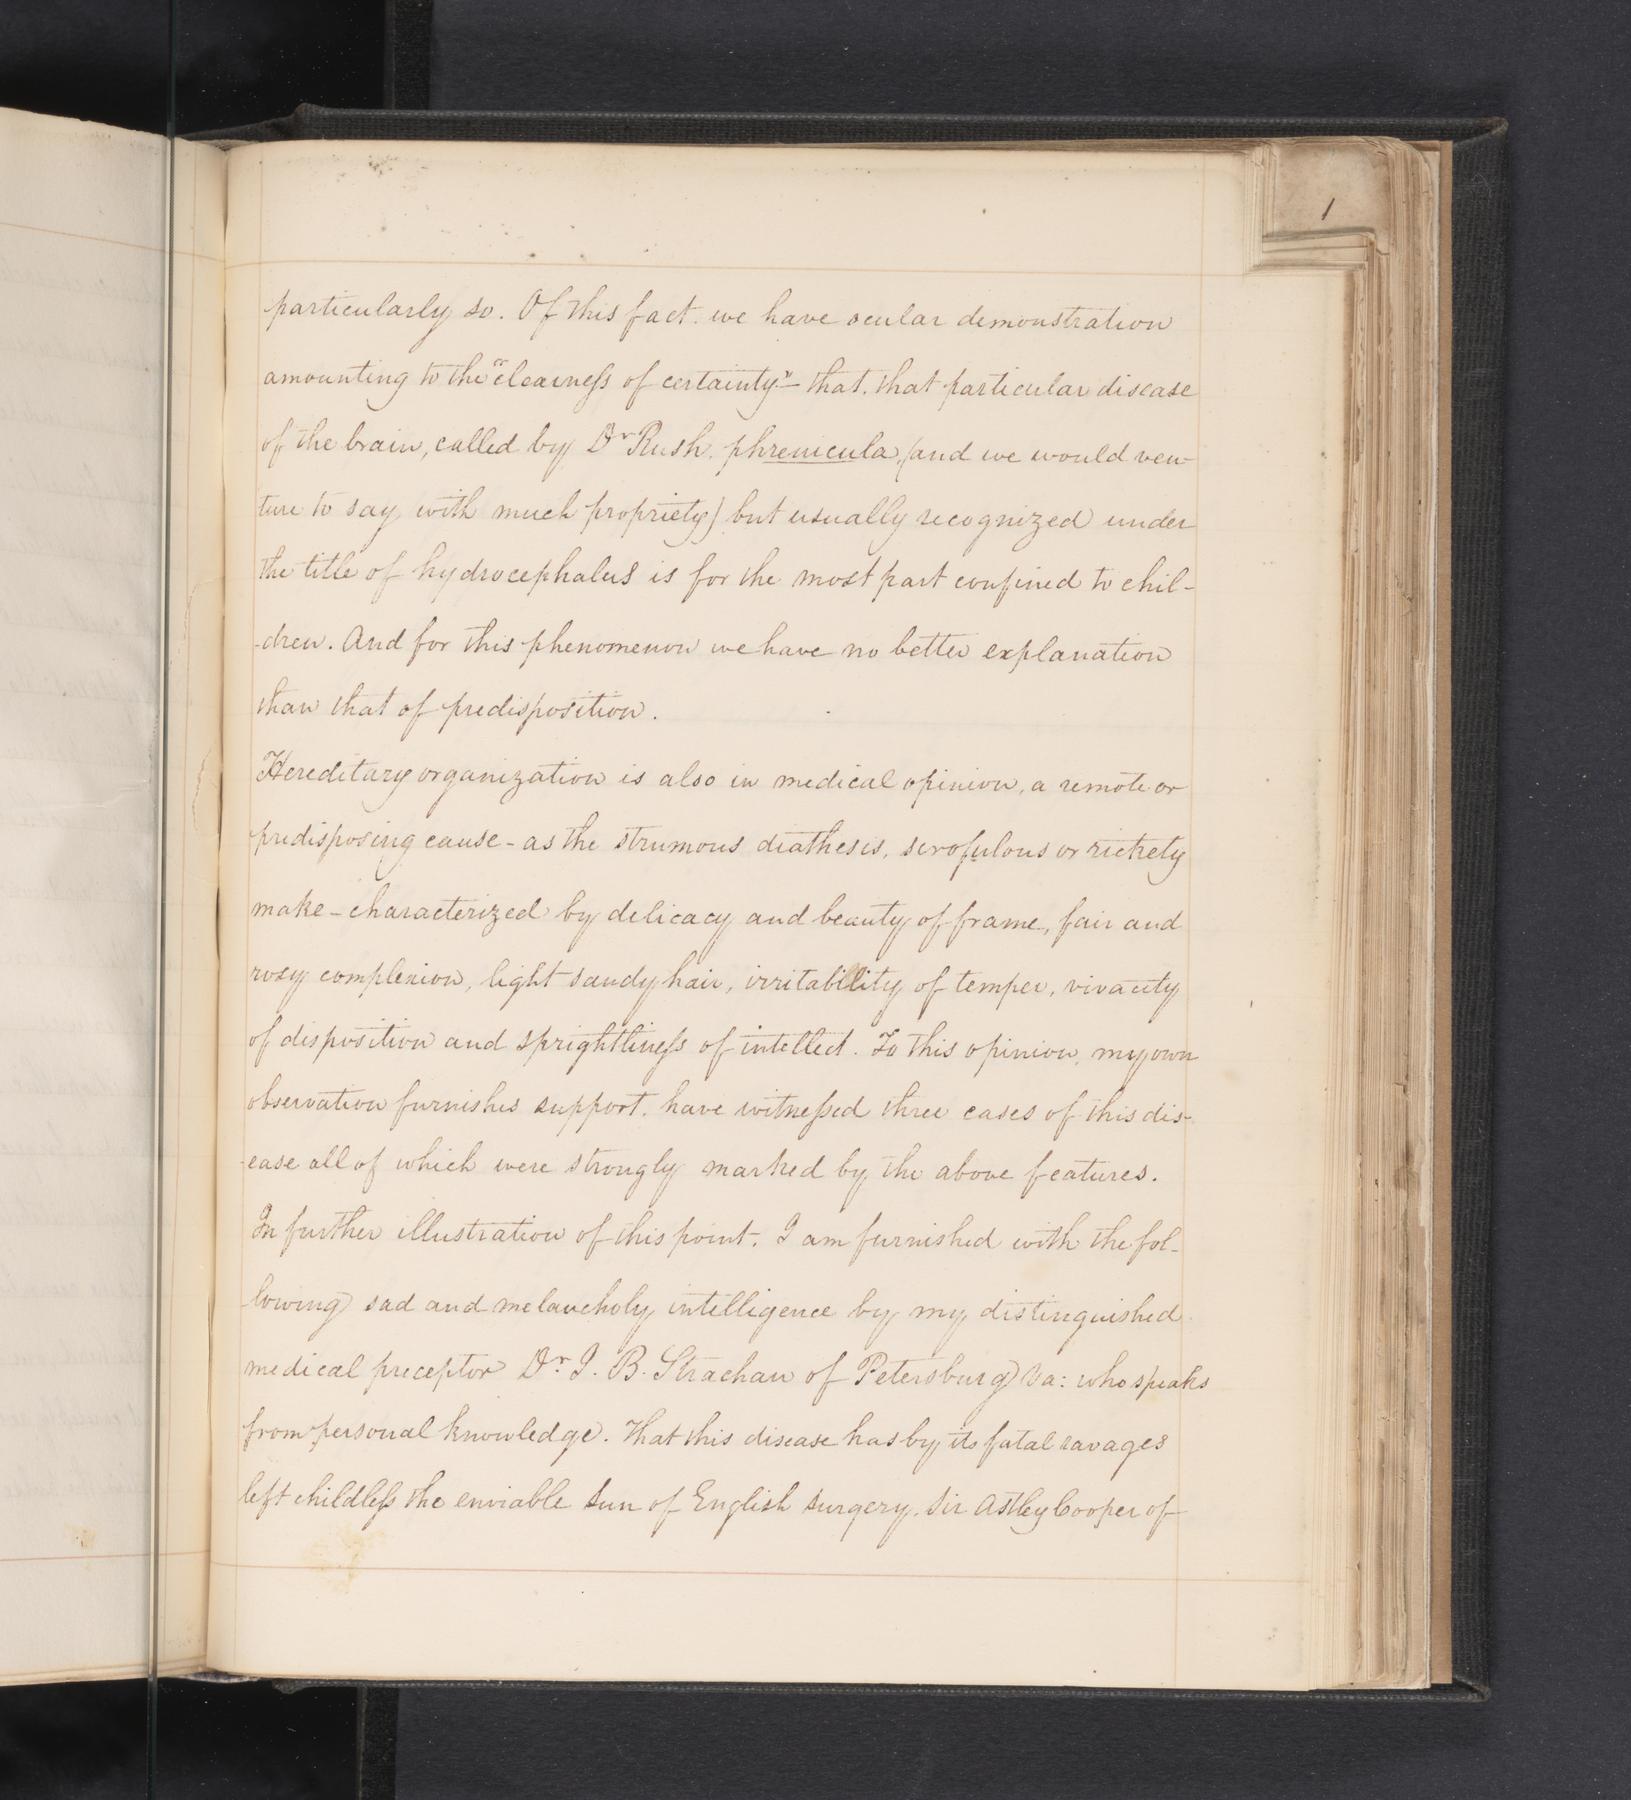 1
particularly so. Of this fact. we have ocular demonstration
amounting to the "clearness of certainty" - that, that particular disease
of the brain, called by Dr Rush, phrenicula, (and we would ven-
ture to say with much propriety) but usually recognized under
the title of hydrocephalus is for the most part confined to chil-
-dren. And for this phenomenon we have no better explanation
than that of predisposition.
Hereditary organization is also in medical opinion, a remote or
predisposing cause - as the strumous diathesis, scrofulous or rickety
make - characterized by delicacy and beauty of frame, fair and
rosy complexion, light sandy hair, irritability of temper, vivacity
of disposition and sprightliness of intellect. To this opinion, my own
observation furnishes support. have witnessed three cases of this dis-
-ease all of which were strongly marked by the above features.
In further illustration of this point. I am furnished with the fol-
lowing sad and melancholy intelligence by my distinguished
medical preceptor Dr. J. B. Strachan of Petersburg Va: who speaks
from personal knowledge. That this disease has by its fatal ravages
left childless the enviable Sun of English surgery. Sir Astley Cooper of